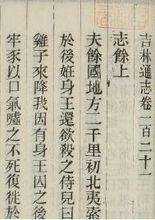 吉林通志卷一百二十一
志餘上
夫餘國地方二千里初北夷索
於後妊身王還欲殺之侍兒曰
雞子來降我因有身王囚之後
牢豕以口氣噓之不死復徙於